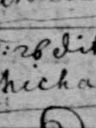 :28 dit
hicha